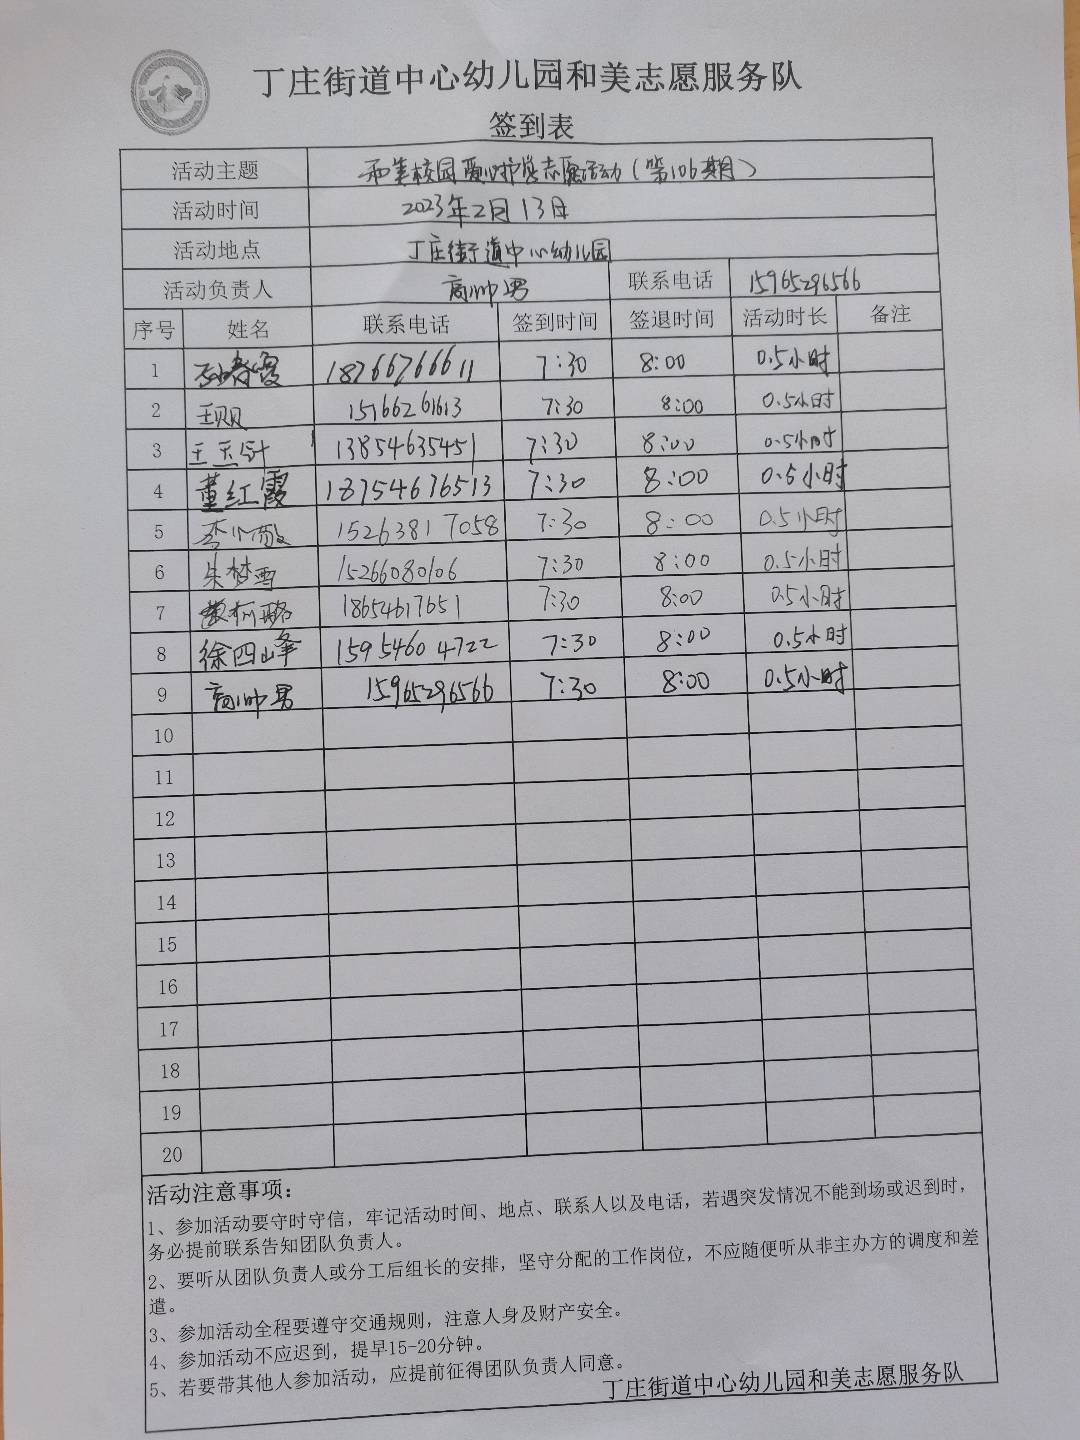 丁庄街道中心幼儿园和美志愿服务队
签到表
活动主题 和美校园爱心护学志愿活动（第106期）
活动时间 2023年2月13日
活动地点 丁庄街道中心幼儿园
活动负责人 高帅男 联系电话 15965296566
序号 姓名 联系电话 签到时间 签退时间 活动时长 备注
1 18766766611 7:30 8:00 0.5小时
2 15166261613 7:30 8:00 0.5小时
3 13854635451 7:30 8:00 0.5小时
4 董红霞 18754676513 7:30 8:00 0.5小时
5 李小敏 15263817058 7:30 8:00 0.5小时
6 朱梦雪 15266080106 7:30 8:00 0.5小时
7 18654617651 7:30 8:00 0.5小时
8 徐四峰 15954604722 7:30 8:00 0.5小时
9 高帅男 15965296566 7:30 8:00 0.5小时
10
11
12
13
14
15
16
17
18
19
20
活动注意事项：
1、参加活动要守时守信，牢记活动时间、地点、联系人以及电话，若遇突发情况不能到场或迟到时，
务必提前联系告知团队负责人。
2、要听从团队负责人或分工后组长的安排，坚守分配的工作岗位，不应随便听从非主办方的调度和差
遣。
3、参加活动全程要遵守交通规则，注意人身及财产安全。
4、参加活动不应迟到，提早15-20分钟。
5、若要带其他人参加活动，应提前征得团队负责人同意。
丁庄街道中心幼儿园和美志愿服务队